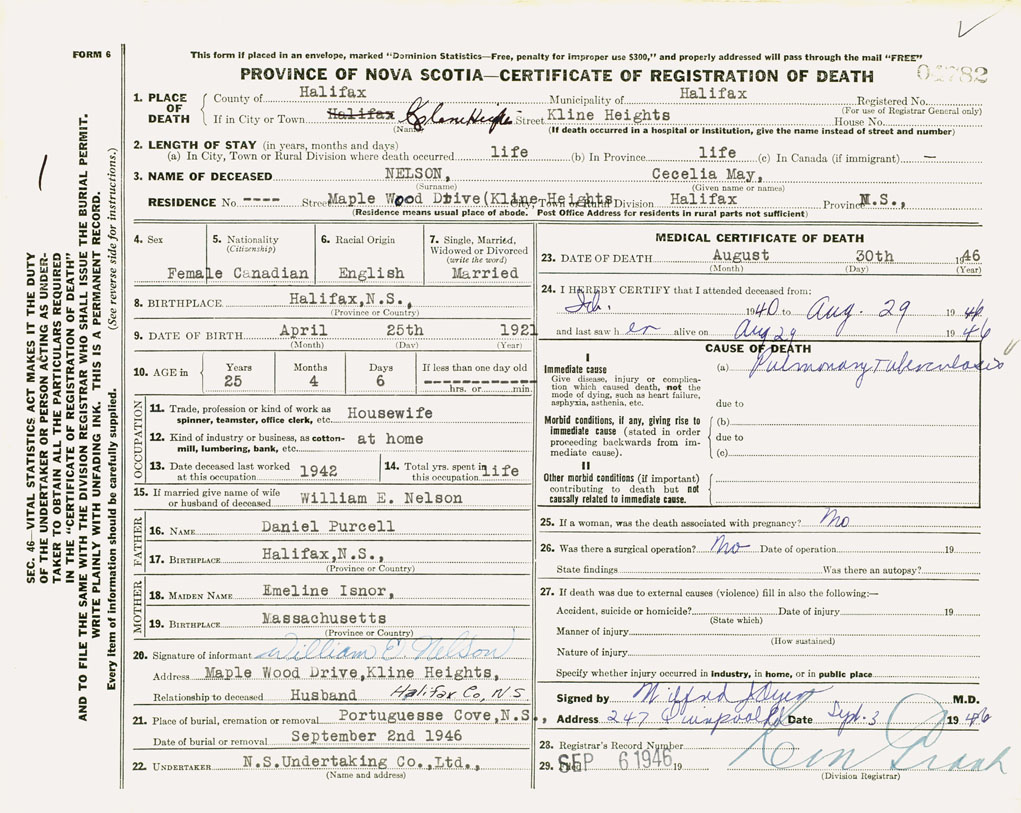 FORM 6
This form if placed in an envelope, marked "Dominion Statistics—Free, penalty for improper use $300," and properly addressed will pass through the mail "FREE"
PROVINCE OF NOVA SCOTIA—CERTIFICATE OF REGISTRATION OF DEATH
1. PLACE OF DEATH
County of Halifax Municipality of Halifax Registered No.
(For use of Registrar General only)
If in City or Town Halifax Street Kline Heights House No.
(Name) (If death occurred in a hospital or institution, give the name instead of street and number)
2. LENGTH OF STAY (in years, months and days)
(a) In City, Town or Rural Division where death occurred life (b) In Province life (c) In Canada (if immigrant) —
3. NAME OF DECEASED NELSON, Cecelia May,
(Surname) (Given name or names)
RESIDENCE No. ---- Street Maple Wood Drive(Kline Heights Halifax Province N.S.,
(Residence means usual place of abode. Post Office Address for residents in rural parts not sufficient)
4. Sex Female
5. Nationality (Citizenship) Canadian
6. Racial Origin English
7. Single, Married, Widowed or Divorced (write the word) Married
8. BIRTHPLACE Halifax,N.S.,
(Province or Country)
9. DATE OF BIRTH April 25th 1921
(Month) (Day) (Year)
10. AGE in Years 25 Months 4 Days 6 If less than one day old
hrs. or min.
OCCUPATION
11. Trade, profession or kind of work as spinner, teamster, office clerk, etc. Housewife
12. Kind of industry or business, as cotton-mill, lumbering, bank, etc. at home
13. Date deceased last worked at this occupation 1942
14. Total yrs. spent in this occupation life
15. If married give name of wife or husband of deceased William E. Nelson
FATHER
16. NAME Daniel Purcell
17. BIRTHPLACE Halifax,N.S.,
(Province or Country)
MOTHER
18. MAIDEN NAME Emeline Isnor,
19. BIRTHPLACE Massachusetts
(Province or Country)
20. Signature of informant William E. Nelson
Address Maple Wood Drive,Kline Heights,
Relationship to deceased Husband Halifax Co, N.S
21. Place of burial, cremation or removal Portuguesse Cove,N.S.,
Date of burial or removal September 2nd 1946
22. UNDERTAKER N.S.Undertaking Co.,Ltd.,
(Name and address)
MEDICAL CERTIFICATE OF DEATH
23. DATE OF DEATH August 30th 1946
(Month) (Day) (Year)
24. I HEREBY CERTIFY that I attended deceased from:
1940 to Aug. 29 1946
and last saw her alive on Aug 29 1946
CAUSE OF DEATH
I
Immediate cause (a) Pulmonary Tuberculosis
Give disease, injury or complication which caused death, not the mode of dying, such as heart failure, asphyxia, asthenia, etc.
due to
Morbid conditions, if any, giving rise to immediate cause (stated in order proceeding backwards from immediate cause).
(b)
due to
(c)
II
Other morbid conditions (if important) contributing to death but not causally related to immediate cause.
25. If a woman, was the death associated with pregnancy? No
26. Was there a surgical operation? No Date of operation 19
State findings Was there an autopsy?
27. If death was due to external causes (violence) fill in also the following:—
Accident, suicide or homicide? Date of injury 19
(State which)
Manner of injury
(How sustained)
Nature of injury
Specify whether injury occurred in industry, in home, or in public place
Signed by M.D.
Address 247 Quinpool Rd Date Sept. 3 1946
28. Registrar's Record Number
29. SEP 6 1946 19
(Division Registrar)
SEC. 46—VITAL STATISTICS ACT MAKES IT THE DUTY
OF THE UNDERTAKER OR PERSON ACTING AS UNDER-
TAKER TO OBTAIN ALL THE PARTICULARS REQUIRED
IN THE "CERTIFICATE OF REGISTRATION OF DEATH"
AND TO FILE THE SAME WITH THE DIVISION REGISTRAR WHO SHALL ISSUE THE BURIAL PERMIT.
WRITE PLAINLY WITH UNFADING INK. THIS IS A PERMANENT RECORD.
Every item of information should be carefully supplied. (See reverse side for instructions.)